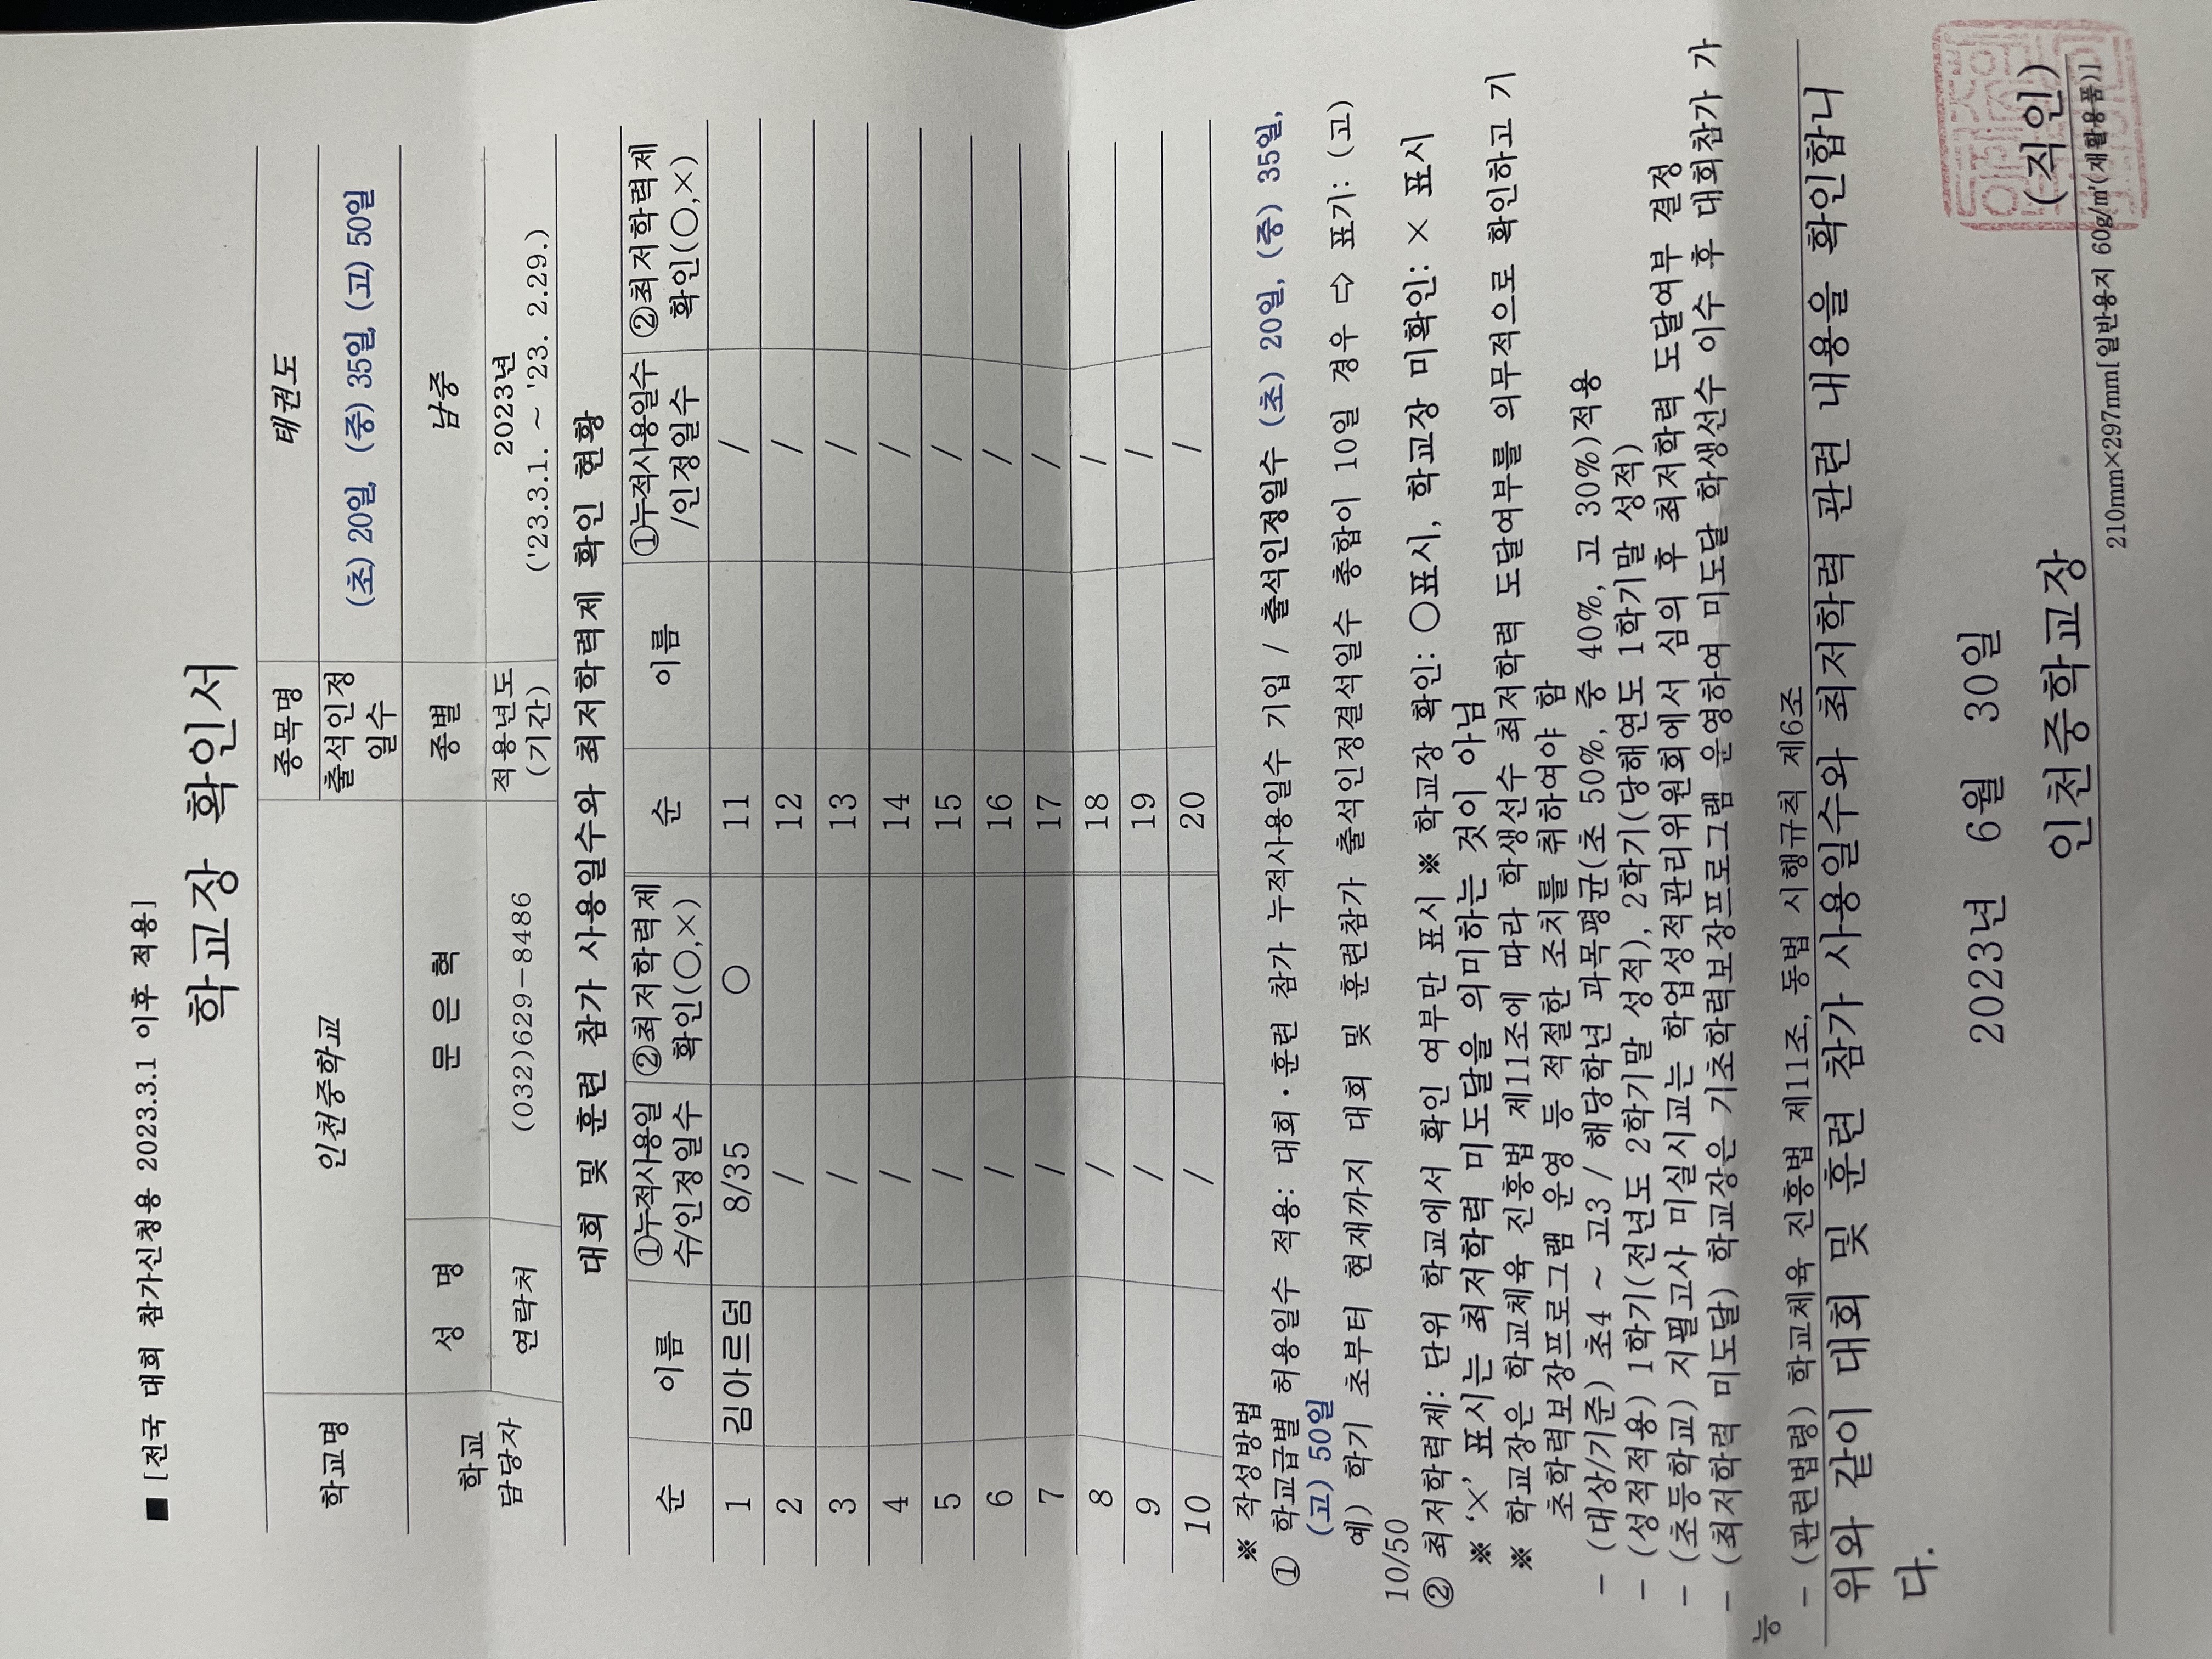 ■ [전국 대회 참가신청용 2023.3.1 이후 적용]
학교장 확인서
학교명 인천중학교 종목명 태권도
출석인정일수 (초) 20일, (중) 35일, (고) 50일
학교 담당자 성 명 문 은 혁 종별 남중
연락처 (032)629-8486 적용년도 (기간) 2023년 ('23.3.1. ~ '23. 2.29.)
대회 및 훈련 참가 사용일수와 최저학력제 확인 현황
순 이름 ①누적사용일수/인정일수 ②최저학력제 확인(○,×) 순 이름 ①누적사용일수/인정일수 ②최저학력제 확인(○,×)
1 김아르덤 8/35 ○ 11 /
2 / 12 /
3 / 13 /
4 / 14 /
5 / 15 /
6 / 16 /
7 / 17 /
8 / 18 /
9 / 19 /
10 / 20 /
※ 작성방법
① 학교급별 허용일수 적용: 대회·훈련 참가 누적사용일수 기입 / 출석인정일수 (초) 20일, (중) 35일,
(고) 50일
예) 학기 초부터 현재까지 대회 및 훈련참가 출석인정결석일수 총합이 10일 경우 ⇨ 표기: (고)
10/50
② 최저학력제: 단위 학교에서 확인 여부만 표시 ※ 학교장 확인: ○표시, 학교장 미확인: × 표시
※ '×' 표시는 최저학력 미도달을 의미하는 것이 아님
※ 학교장은 학교체육 진흥법 제11조에 따라 학생선수 최저학력 도달여부를 의무적으로 확인하고 기
초학력보장프로그램 운영 등 적절한 조치를 취하여야 함
- (대상/기준) 초4 ~ 고3 / 해당학년 과목평균(초 50%, 중 40%, 고 30%)적용
- (성적적용) 1학기(전년도 2학기말 성적), 2학기(당해연도 1학기말 성적)
- (초등학교) 지필고사 미실시교는 학업성적관리위원회에서 심의 후 최저학력 도달여부 결정
- (최저학력 미도달) 학교장은 기초학력보장프로그램 운영하여 미도달 학생선수 이수 후 대회참가 가
능
- (관련법령) 학교체육 진흥법 제11조, 동법 시행규칙 제6조
위와 같이 대회 및 훈련 참가 사용일수와 최저학력 관련 내용을 확인합니
다.
2023년 6월 30일
인천중학교장 (직인)
210mm×297mm[일반용지 60g/㎡(재활용품)]